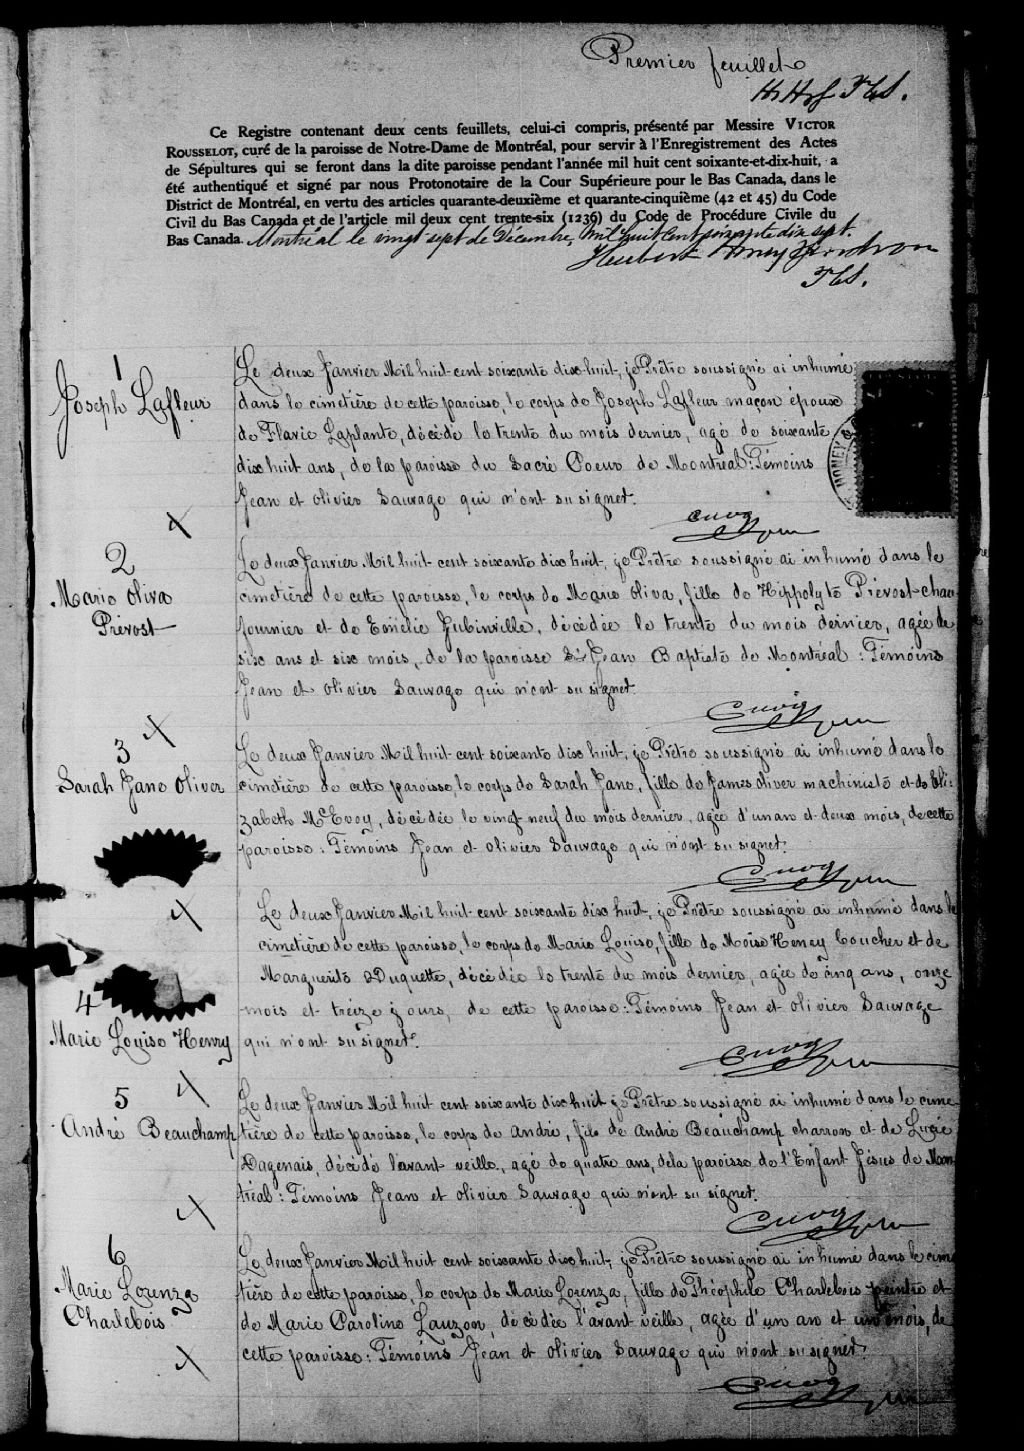 Premier feuillet
Ce Registre contenant deux cents feuillets, celui-ci compris, présenté par Messire VICTOR
ROUSSELOT, curé de la paroisse de Notre-Dame de Montréal, pour servir à l'Enregistrement des Actes
de Sépultures qui se feront dans la dite paroisse pendant l'année mil huit cent soixante-et-dix-huit, a
été authentiqué et signé par nous Protonotaire de la Cour Supérieure pour le Bas Canada, dans le
District de Montréal, en vertu des articles quarante-deuxième et quarante-cinquième (42 et 45) du Code
Civil du Bas Canada et de l'article mil deux cent trente-six (1236) du Code de Procédure Civile du
Bas Canada. Montréal le vingt sept de Décembre, mil huit cent soixante dix sept.
Hubert
1
Joseph Lafleur
Le deux Janvier Mil huit-cent soixante dix-huit, je Prêtre soussigné ai inhumé
dans le cimetière de cette paroisse, le corps de Joseph Lafleur maçon époux
de Flavie Laplante, décédé le trente du mois dernier, agé de soixante
dix huit ans, de la paroisse du Sacré Coeur de Montréal: Témoins
Jean et Olivier Sauvage qui n'ont su signer.
MONEY
2
Marie Oliva
Prévost
Le deux Janvier Mil huit-cent soixante dix huit, je Prêtre soussigné ai inhumé dans le
cimetière de cette paroisse, le corps de Marie Oliva, fille de Hippolyte Prévost chau-
fournier et de Emélie Jubinville, décédée le trente du mois dernier, agée de
six ans et six mois, de la paroisse St Jean Baptiste de Montréal: Témoins
Jean et Olivier Sauvage qui n'ont su signer.
3
Sarah Jane Oliver
Le deux Janvier Mil huit-cent soixante dix huit, je Prêtre soussigné ai inhumé dans le
cimetière de cette paroisse, le corps de Sarah Jane, fille de James Oliver machiniste et de Eli-
zabeth McEvoy, décédée le vingt-neuf du mois dernier, agée d'un an et deux mois, de cette
paroisse: Témoins Jean et Olivier Sauvage qui n'ont su signer.
4
Marie Louise Henry
Le deux Janvier Mil huit-cent soixante dix huit, je Prêtre soussigné ai inhumé dans le
cimetière de cette paroisse, le corps de Marie Louise, fille de Moïse Henry Coucher et de
Marguerite Duquette, décédée le trente du mois dernier, agée de cinq ans, onze
mois et treize jours, de cette paroisse: Témoins Jean et Olivier Sauvage
qui n'ont su signer.
5
André Beauchamp
Le deux Janvier Mil huit cent soixante dix huit je Prêtre soussigné ai inhumé dans le cime-
tière de cette paroisse, le corps de André, fils de André Beauchamp charron et de Lucie
Dagenais, décédé l'avant-veille, agé de quatre ans, de la paroisse de l'Enfant Jésus de Mon-
tréal: Témoins Jean et Olivier Sauvage qui n'ont su signer.
6
Marie Lorenza
Charlebois
Le deux Janvier Mil huit cent soixante dix huit, je Prêtre soussigné ai inhumé dans le cime
tière de cette paroisse, le corps de Marie Lorenza, fille de Théophile Charlebois peintre et
de Marie Caroline Lauzon, décédée l'avant veille, agée d'un an et un mois, de
cette paroisse: Témoins Jean et Olivier Sauvage qui n'ont su signer.